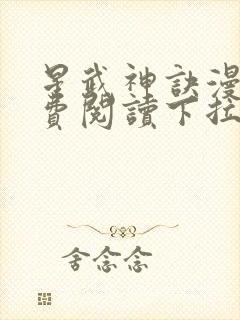 星武神訣漫
費閱讀下拉
舍念念